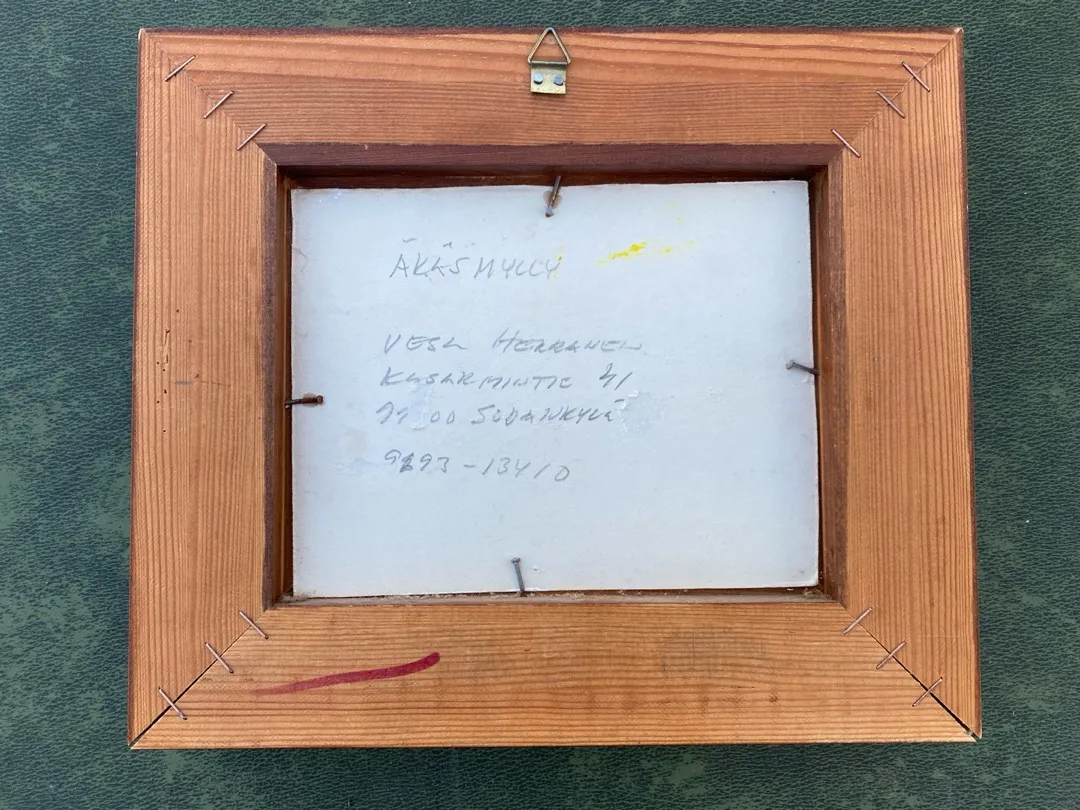 ÄKÄSMYLLY
VESA HERRANEN
KASARMINTIE 41
SODANKYLÄ
9693-13410